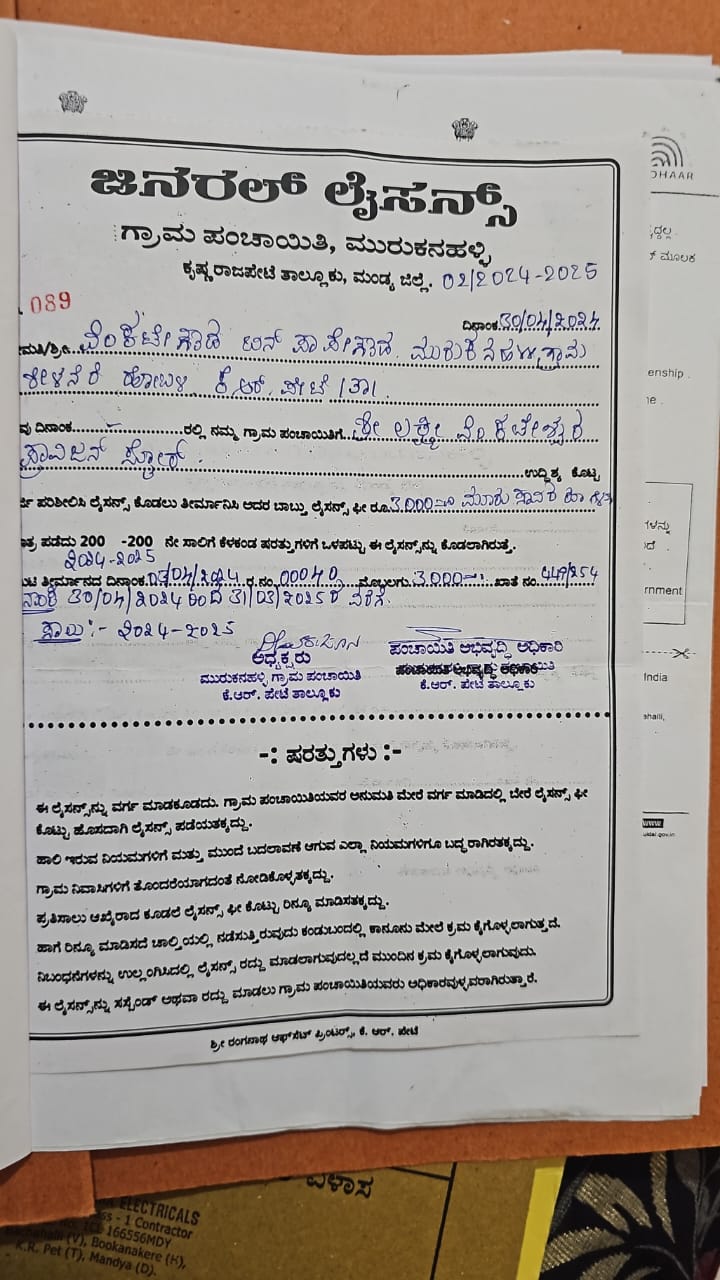 ಜನರಲ್ ಲೈಸನ್ಸ್
ಗ್ರಾಮ ಪಂಚಾಯಿತಿ, ಮುರುಕನಹಳ್ಳಿ
ಕೃಷ್ಣರಾಜಪೇಟೆ ತಾಲ್ಲೂಕು, ಮಂಡ್ಯ ಜಿಲ್ಲೆ. 02/2024-2025
089
ದಿನಾಂಕ. 30/04/2024
ವೆಂಕಟೇಗೌಡ ಬಿನ್ ಪಾಪೇಗೌಡ ಮುರುಕನಹಳ್ಳಿ ಗ್ರಾಮ
ಶೀಳನೆರೆ ಹೋಬಳಿ ಕೆ.ಆರ್. ಪೇಟೆ ತಾ.
ದಿನಾಂಕ. ರಲ್ಲಿ ನಮ್ಮ ಗ್ರಾಮ ಪಂಚಾಯಿತಿಗೆ. ಶ್ರೀ ಲಕ್ಷ್ಮೀ ವೆಂಕಟೇಶ್ವರ
ಪ್ರಾವಿಜನ್ ಸ್ಟೋರ್. ಉದ್ದಿಶ್ಯ ಕೊಟ್ಟ
ಪರಿಶೀಲಿಸಿ ಲೈಸನ್ಸ್ ಕೊಡಲು ತೀರ್ಮಾನಿಸಿ ಅದರ ಬಾಬ್ತು ಲೈಸನ್ಸ್ ಫೀ ರೂ. 3,000=00 ಮೂರು ಸಾವಿರ
ಪಡೆದು 200 -200 ನೇ ಸಾಲಿಗೆ ಕೆಳಕಂಡ ಷರತ್ತುಗಳಿಗೆ ಒಳಪಟ್ಟು ಈ ಲೈಸನ್ಸ್‌ನ್ನು ಕೊಡಲಾಗಿರುತ್ತೆ.
2024-2025
ತೀರ್ಮಾನದ ದಿನಾಂಕ. ರ.ನಂ. ಮೊಬಲಗು. 3,000=00 ಖಾತೆ ನಂ. 449/254
30/04/2024 ರಿಂದ 31/03/2025 ರ ವರೆಗೆ.
ಸ್ಥಾಯಿ:- 2024-2025
ಅಧ್ಯಕ್ಷರು
ಮುರುಕನಹಳ್ಳಿ ಗ್ರಾಮ ಪಂಚಾಯಿತಿ
ಕೆ.ಆರ್. ಪೇಟೆ ತಾಲ್ಲೂಕು
ಪಂಚಾಯಿತಿ ಅಭಿವೃದ್ಧಿ ಅಧಿಕಾರಿ
ಕೆ.ಆರ್. ಪೇಟೆ ತಾಲ್ಲೂಕು
-: ಷರತ್ತುಗಳು :-
ಈ ಲೈಸನ್ಸ್‌ನ್ನು ವರ್ಗ ಮಾಡಕೂಡದು. ಗ್ರಾಮ ಪಂಚಾಯಿತಿಯವರ ಅನುಮತಿ ಮೇರೆ ವರ್ಗ ಮಾಡಿದಲ್ಲಿ ಬೇರೆ ಲೈಸನ್ಸ್ ಫೀ
ಕೊಟ್ಟು ಹೊಸದಾಗಿ ಲೈಸನ್ಸ್ ಪಡೆಯತಕ್ಕದ್ದು.
ಹಾಲಿ ಇರುವ ನಿಯಮಗಳಿಗೆ ಮತ್ತು ಮುಂದೆ ಬದಲಾವಣೆ ಆಗುವ ಎಲ್ಲಾ ನಿಯಮಗಳಿಗೂ ಬದ್ಧರಾಗಿರತಕ್ಕದ್ದು.
ಗ್ರಾಮ ನಿವಾಸಿಗಳಿಗೆ ತೊಂದರೆಯಾಗದಂತೆ ನೋಡಿಕೊಳ್ಳತಕ್ಕದ್ದು.
ಪ್ರತಿಸಾಲು ಆಖೈರಾದ ಕೂಡಲೆ ಲೈಸನ್ಸ್ ಫೀ ಕೊಟ್ಟು ರಿನ್ಯೂ ಮಾಡಿಸತಕ್ಕದ್ದು.
ಹಾಗೆ ರಿನ್ಯೂ ಮಾಡಿಸದೆ ಚಾಲ್ತಿಯಲ್ಲಿ ನಡೆಸುತ್ತಿರುವುದು ಕಂಡುಬಂದಲ್ಲಿ ಕಾನೂನು ಮೇಲೆ ಕ್ರಮ ಕೈಗೊಳ್ಳಲಾಗುತ್ತದೆ.
ನಿಬಂಧನೆಗಳನ್ನು ಉಲ್ಲಂಗಿಸಿದಲ್ಲಿ ಲೈಸನ್ಸ್ ರದ್ದು ಮಾಡಲಾಗುವುದಲ್ಲದೆ ಮುಂದಿನ ಕ್ರಮ ಕೈಗೊಳ್ಳಲಾಗುವುದು.
ಈ ಲೈಸನ್ಸ್‌ನ್ನು ಸಸ್ಪೆಂಡ್ ಅಥವಾ ರದ್ದು ಮಾಡಲು ಗ್ರಾಮ ಪಂಚಾಯಿತಿಯವರು ಅಧಿಕಾರವುಳ್ಳವರಾಗಿರುತ್ತಾರೆ.
ಶ್ರೀ ರಂಗನಾಥ ಆಫ್‌ಸೆಟ್ ಪ್ರಿಂಟರ್ಸ್, ಕೆ. ಆರ್. ಪೇಟೆ
ಮೂಲಕ
India
www
ವಿಳಾಸ
ELECTRICALS
- 1 Contractor
166556MDY
(V), Bookanakere (H),
K.R. Pet (T), Mandya (D).